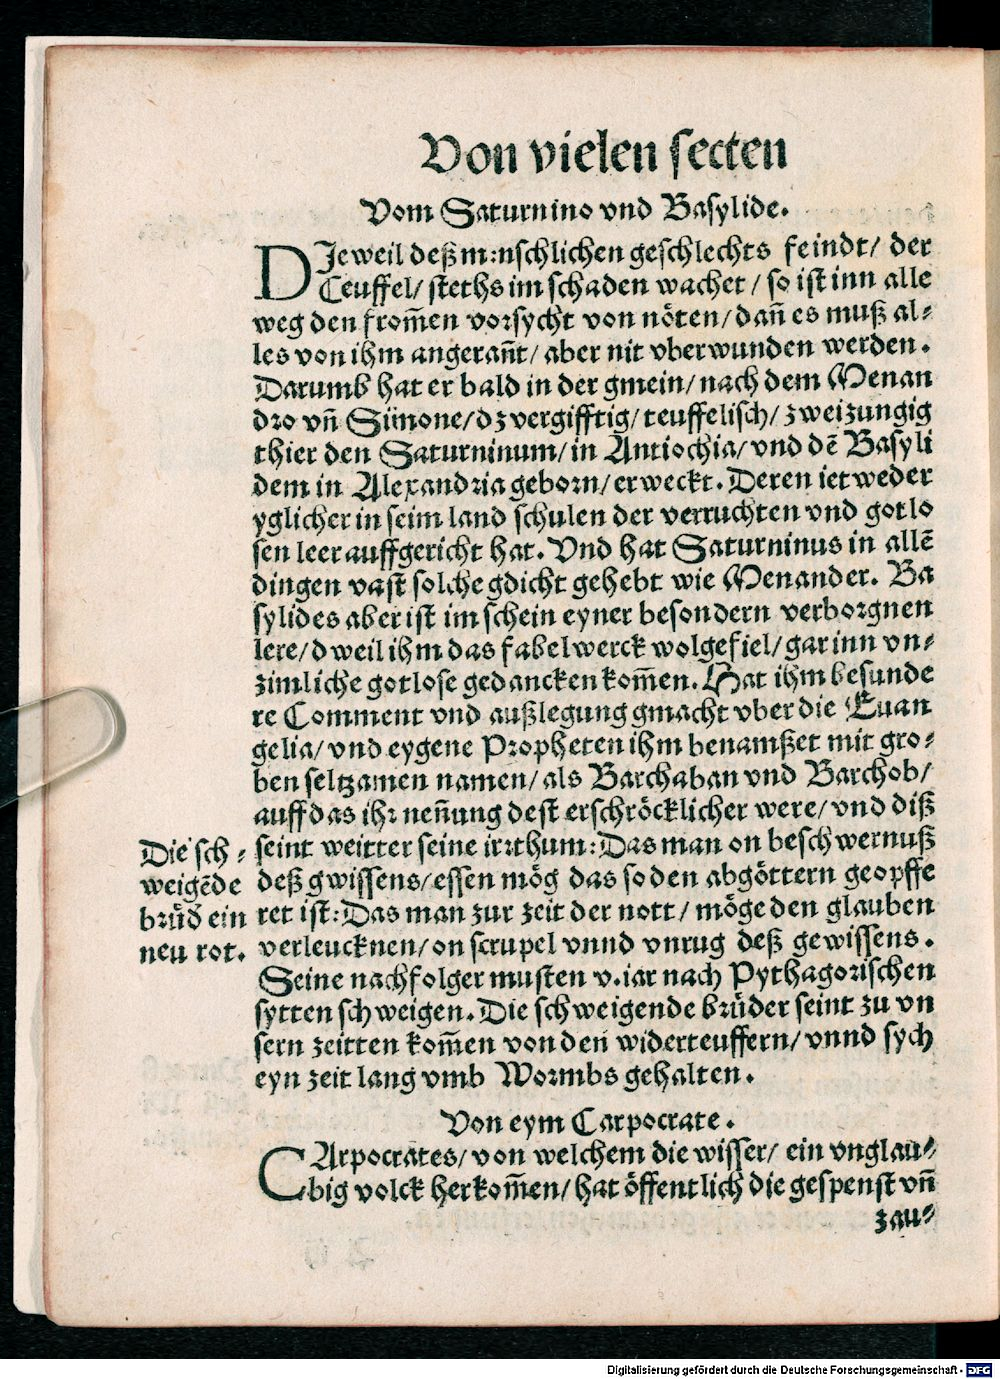 Von vielen secten
Vom Saturnino vnd Basylide.
DJeweil deß m:nschlichen geschlechts feindt/ der
Teuffel/ steths im schaden wachet/ so ist inn alle
weg den from̃en vorsycht von nöten/ dañ es muß al⸗
les von ihm angerañt/ aber nit vberwunden werden.
Darumb hat er bald in der gmein/ nach dem Menan
dro vñ Siimone/ dz vergifftig/ teuffelisch/ zweizungig
thier den Saturninum/ in Antiochia/ vnd dẽ Basyli
dem in Alexandria geborn/ erweckt. Deren ietweder
yglicher in seim land schulen der verruchten vnd gotlo
sen leer auffgericht hat. Vnd hat Saturninus in allẽ
dingen vast solche gdicht gehebt wie Menander. Ba
sylides aber ist im schein eyner besondern verborgnen
lere/ dweil ihm das fabelwerck wolgefiel/ gar inn vn⸗
zimliche gotlose gedancken kom̃en. Hat ihm besunde
re Comment vnd außlegung gmacht vber die Euan
gelia/ vnd eygene Propheten ihm benamßet mit gro⸗
ben seltzamen namen/ als Barchaban vnd Barchob/
auff das ihr neñung dest erschröcklicher were/ vnd diß
seint weitter seine irrthum: Das man on beschwernuß
deß gwissens/ essen mög das so den abgöttern geopffe
ret ist: Das man zur zeit der nott/ möge den glauben
verleucknen/ on scrupel vnnd vnrug deß gewissens.
Seine nachfolger musten v. iar nach Pythagorischen
sytten schweigen. Die schweigende brüder seint zu vn
sern zeitten kom̃en von den widerteuffern/ vnnd sych
eyn zeit lang vmb Wormbs gehalten.
Die sch⸗
weigẽde
brüd̃ ein
neu rot.
Von eym Carpocrate.
CArpocrates/ von welchem die wisser/ ein vnglau⸗
big volck herkom̃en/ hat öffentlich die gespenst vñ
zau⸗
Digitalisierung gefördert durch die Deutsche Forschungsgemeinschaft - DFG